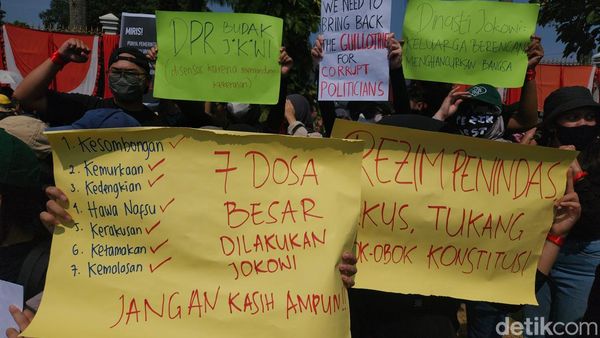 MIRIS!
DPR BUDAK
J*K*WI
(disensor karena mengandung
kekerasan)
WE NEED TO
BRING BACK
THE GUILLOTINE
FOR
CORRUPT
POLITICIANS
Dinasti Jokowi:
KELUARGA BERENCANA
MENGHANCURKAN BANGSA
1. Kesombongan ✓
2. Kemurkaan ✓
3. Kedengkian ✓
4. Hawa Nafsu ✓
5. Kerakusan ✓
6. Ketamakan ✓
7. Kemalasan ✓
7 DOSA
BESAR
DILAKUKAN
JOKOWI
JANGAN KASIH AMPUN!!
REZIM PENINDAS
KUS, TUKANG
OK-OBOK KONSTITUSI
detikcom